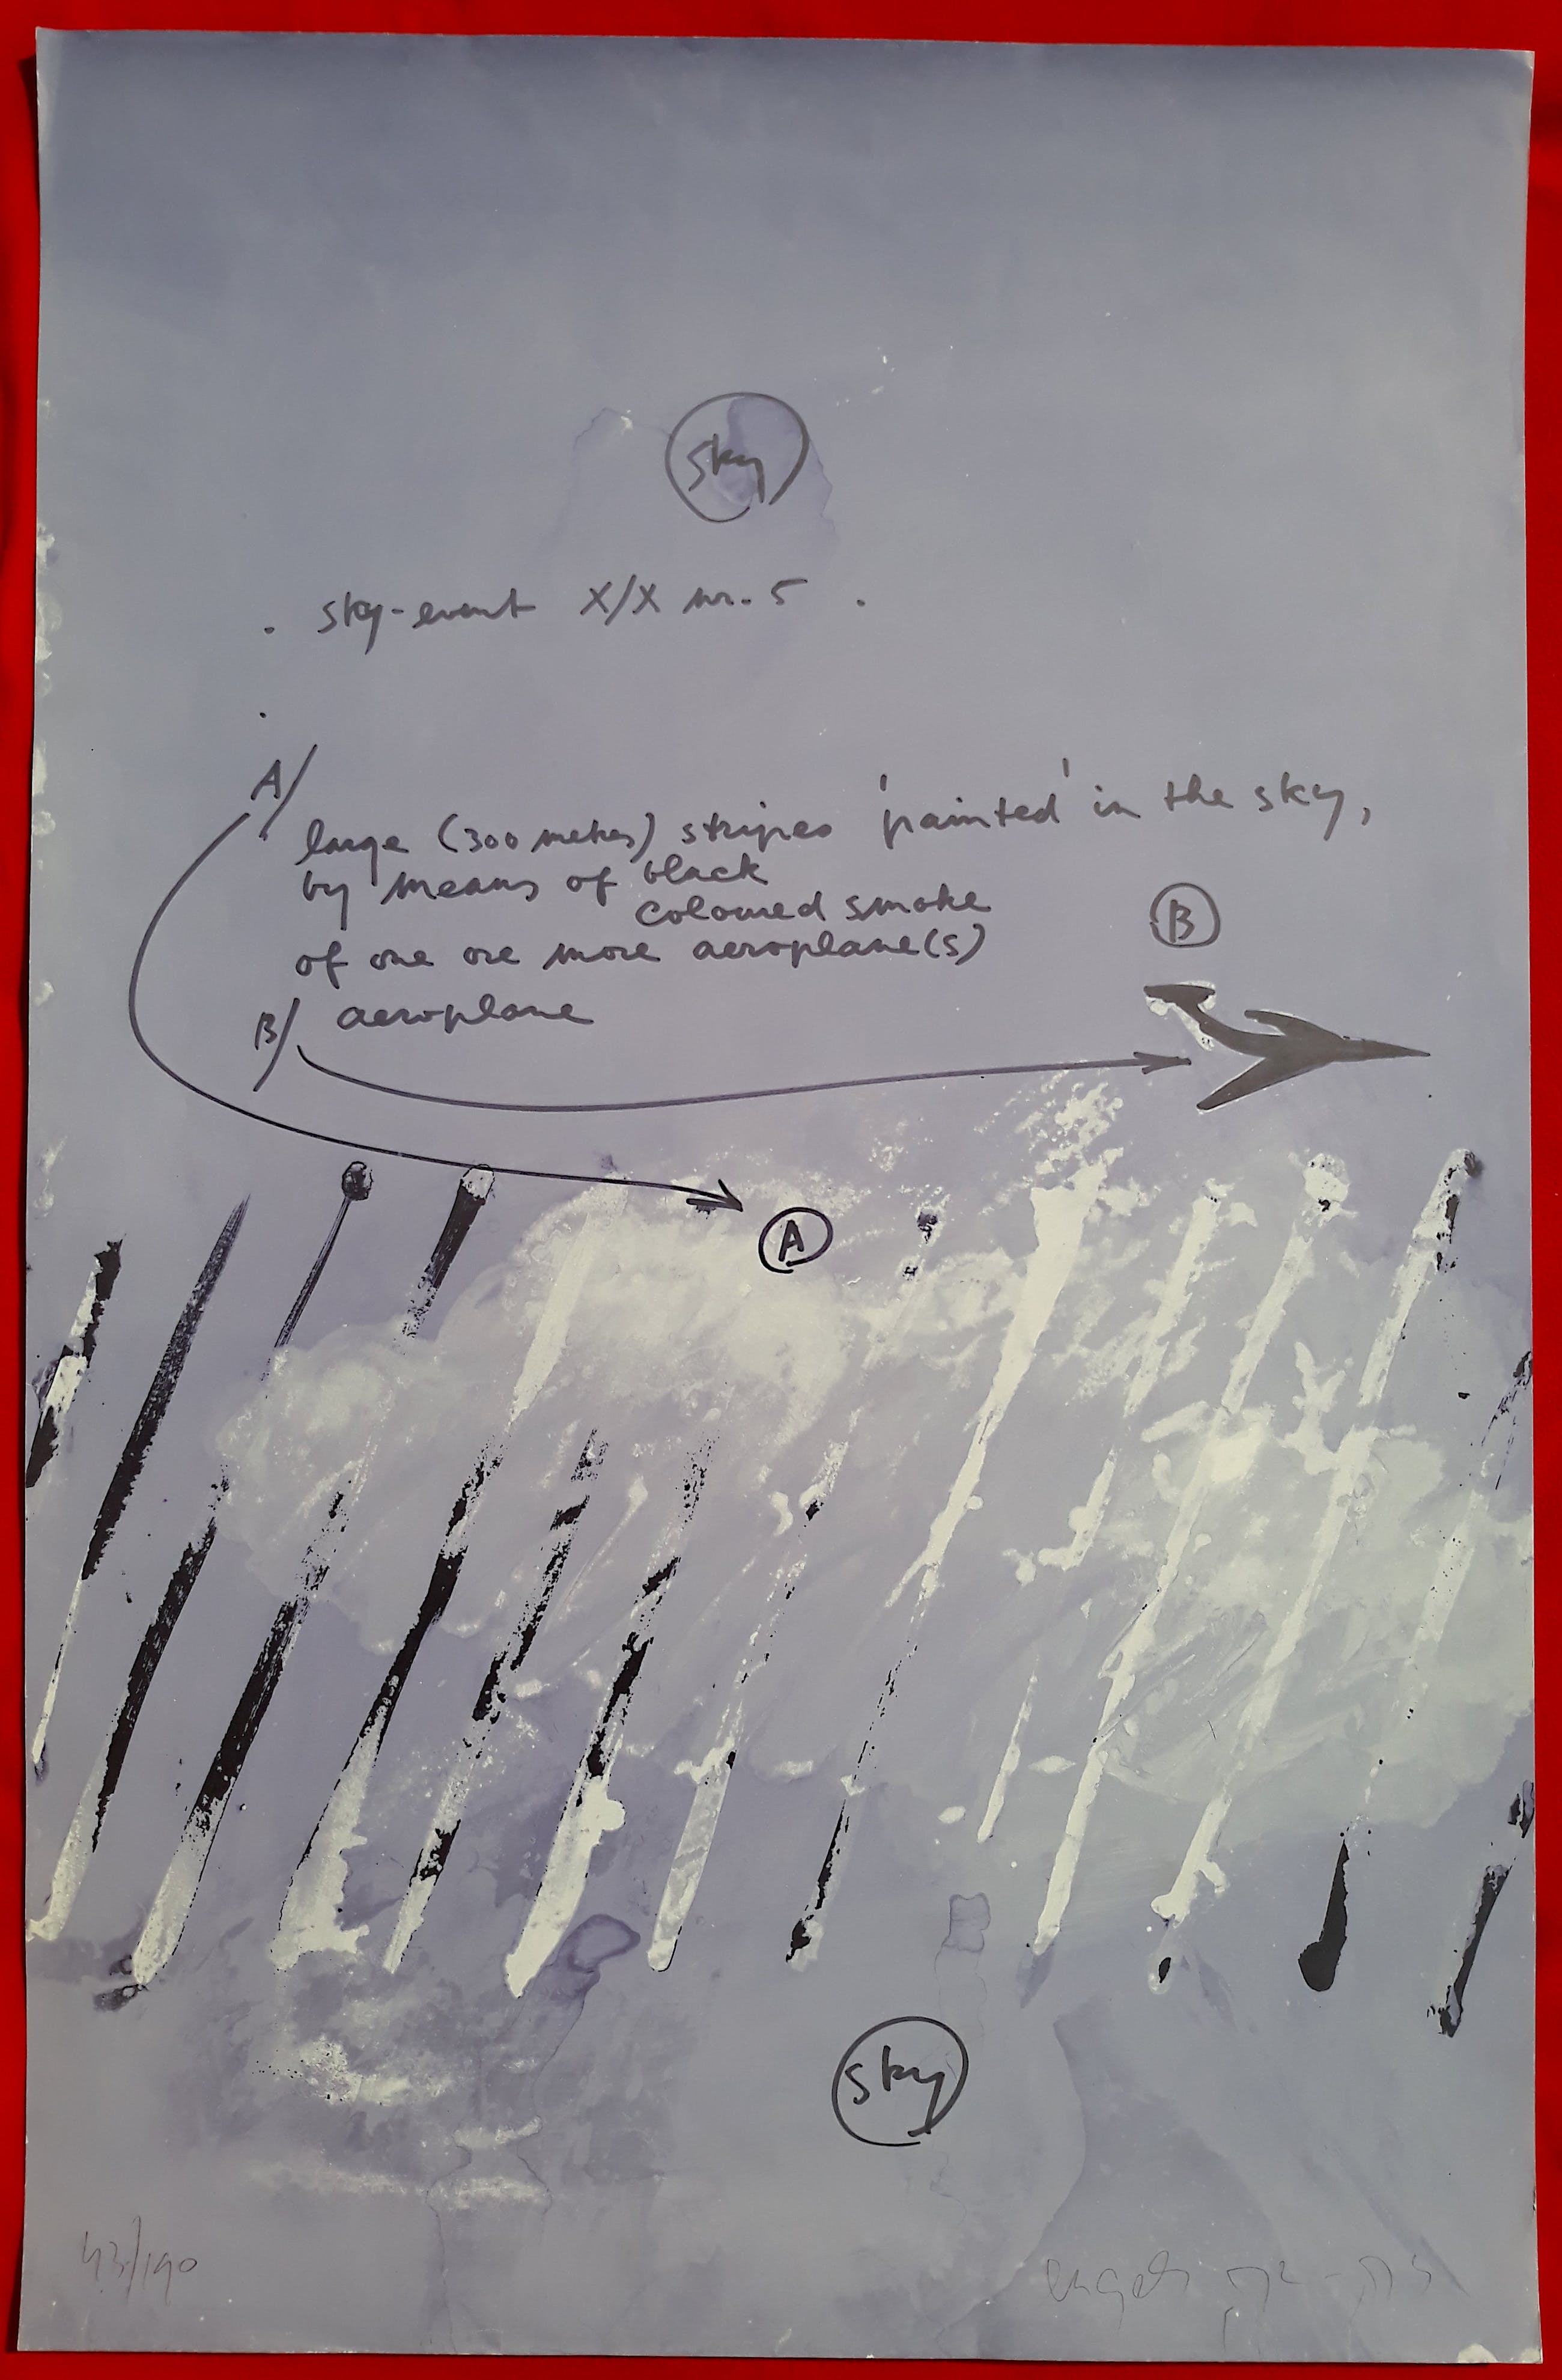 sky
. sky-event X/X nr. 5 .
A/
large (300 metres) stripes 'painted' in the sky,
by means of black
coloured smoke
of one ore more aeroplane(s)
B
B/ aeroplane
A
sky
43/190
engels